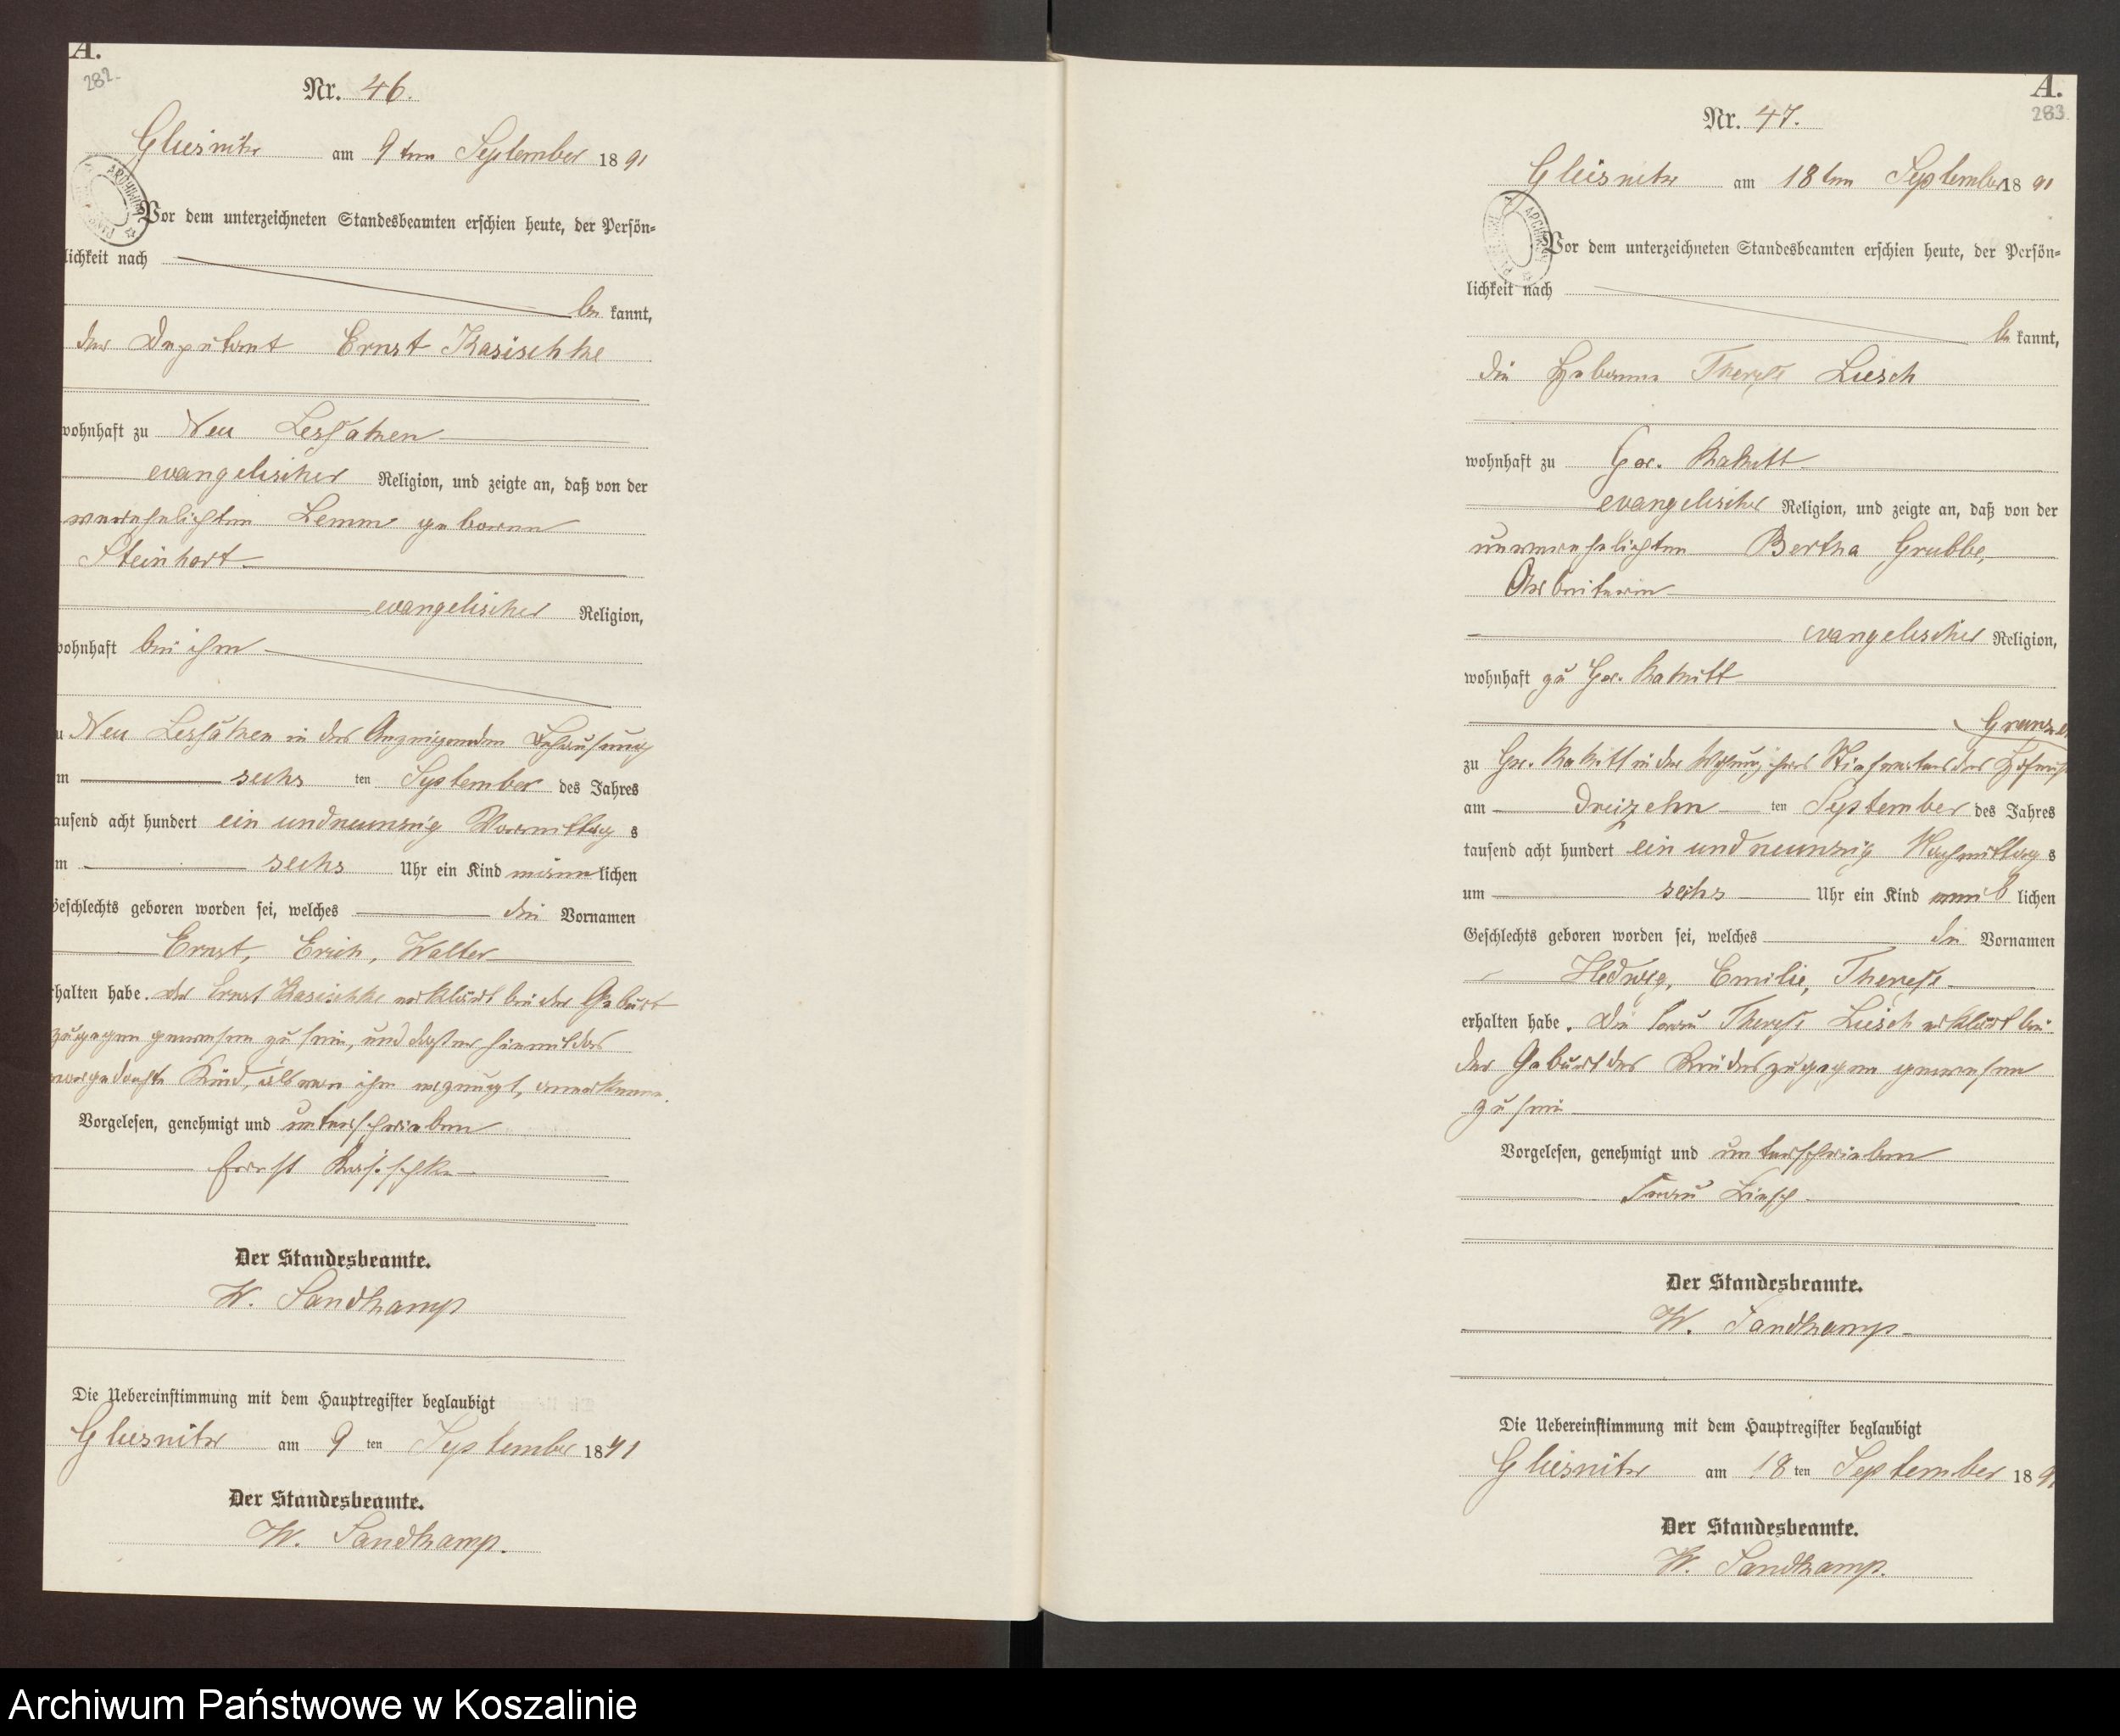 A.
282.
Nr. 46.
Gliesnitz am 9ten September 1891
Vor dem unterzeichneten Standesbeamten erschien heute, der Persön-
lichkeit nach
be kannt,
der Deputant Ernst Kasischke
wohnhaft zu Neu Lessaken
evangelischer Religion, und zeigte an, daß von der
verehelichten Lemm geborenen
Steinhort
evangelischer Religion,
wohnhaft bei ihm
zu Neu Lessaken in des Anzeigenden Behausung
am sechs ten September des Jahres
tausend acht hundert ein und neunzig Vormittag s
um sechs Uhr ein Kind männ lichen
Geschlechts geboren worden sei, welches die Vornamen
Ernst, Erich, Walter
erhalten habe. Der Ernst Kasischke erklärt bei der Geburt
zugegen gewesen zu sein, und daß er hiermit das
vorgedachte Kind, als von ihm erzeugt, anerkenne.
Vorgelesen, genehmigt und unterschrieben
Ernst Kasischke
Der Standesbeamte.
W. Sandkamp
Die Uebereinstimmung mit dem Hauptregister beglaubigt
Gliesnitz am 9 ten September 1891
Der Standesbeamte.
W. Sandkamp.
A.
283.
Nr. 47.
Gliesnitz am 18ten September 18 91
Vor dem unterzeichneten Standesbeamten erschien heute, der Persön-
lichkeit nach
be kannt,
die Hebamme Therese Liesch
wohnhaft zu Gr. Rakitt
evangelischer Religion, und zeigte an, daß von der
unverehelichten Bertha Grubbe,
Arbeiterin
evangelischer Religion,
wohnhaft zu Gr. Rakitt
zu Gr. Rakitt in der Wohnung ihres Stiefvaters des
am dreizehn ten September des Jahres
tausend acht hundert ein und neunzig Nachmittag s
um sechs Uhr ein Kind weib lichen
Geschlechts geboren worden sei, welches die Vornamen
Hedwig, Emilie, Therese
erhalten habe. Die Frau Therese Liesch erklärt bei
der Geburt des Kindes zugegen gewesen
zu sein
Vorgelesen, genehmigt und unterschrieben
Frau Liesch
Der Standesbeamte.
W. Sandkamp
Die Uebereinstimmung mit dem Hauptregister beglaubigt
Gliesnitz am 18 ten September 18 91
Der Standesbeamte.
W. Sandkamp.
Archiwum Państwowe w Koszalinie